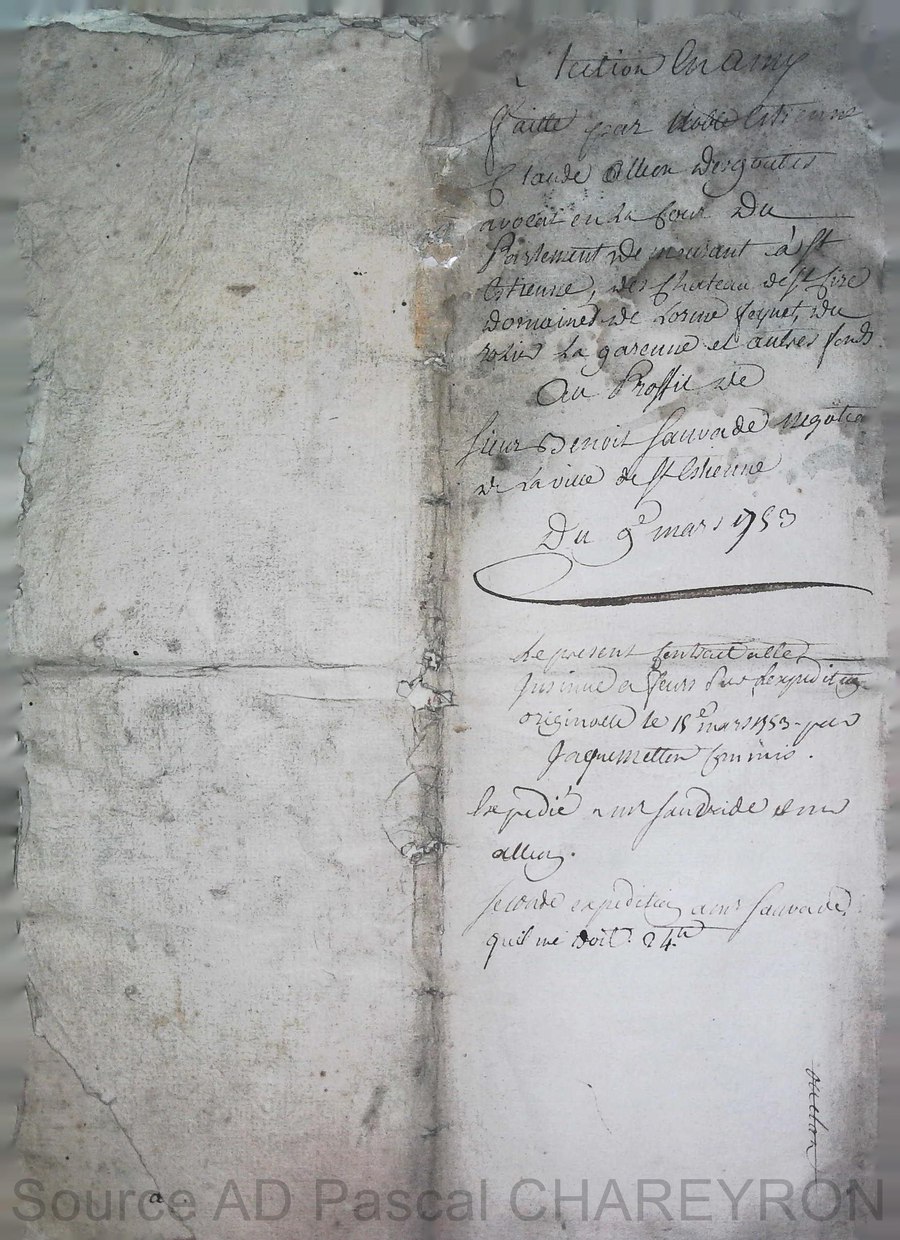 Election En Amy
faitte par Noble Estienne
Claude Allion Desgouttes
avocat en La Cour Du
Parlement De meurant à St
Estienne, des Chateau de St Cire
domaines de Lorme feynet, Du
La garenne et autres fonds.
Au Proffit de
Sieur Benoit Sauvade Negotia
de La ville de St Estienne
Du 9e mars 1753
Le present Contrat a été
Insinué a feurs Sur L'expedition
originalle le 15e mars 1753 par
Jaquemetton Commis.
Expedié a mr Sauvade a mr
allion.
seconde expedition a mr Sauvade,
quil me Doit. 24tt
Source AD Pascal CHAREYRON